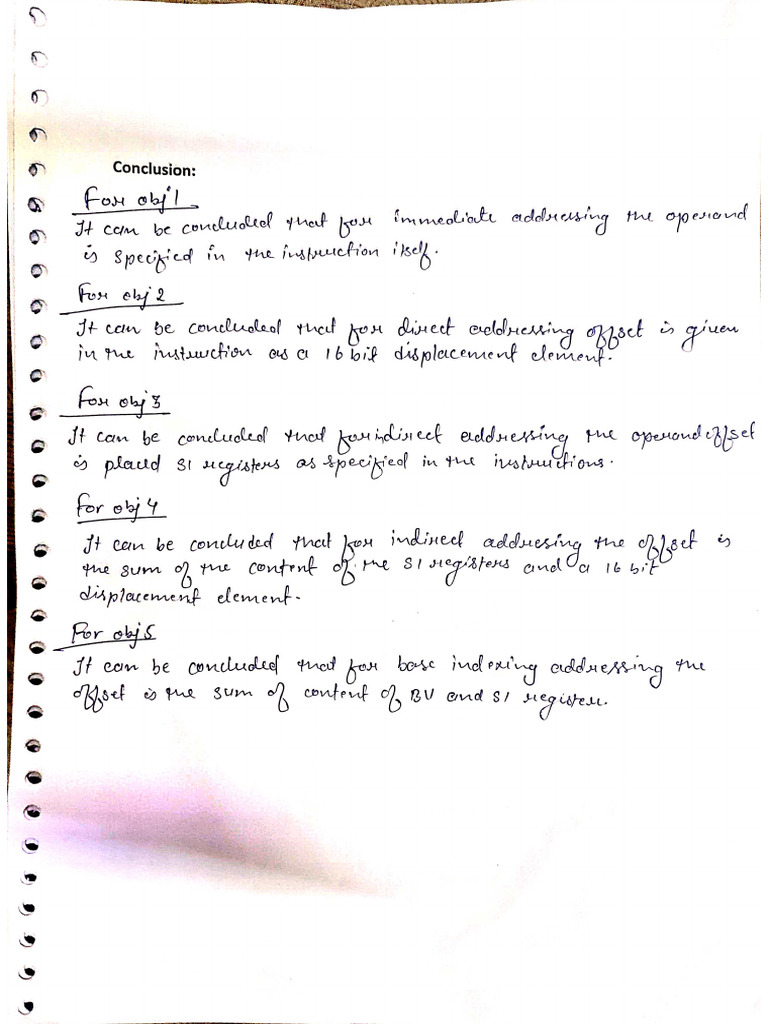 Conclusion:
For obj 1
It can be concluded that for immediate addressing the operand
is specified in the instruction itself.
For obj 2
It can be concluded that for direct addressing offset is given
in the instruction as a 16 bit displacement element.
For obj 3
It can be concluded that for indirect addressing the operand offset
is placed SI registers as specified in the instructions.
For obj 4
It can be concluded that for indirect addresing the offset is
the sum of the content of the SI registers and a 16 bit
displacement element.
For obj 5
It can be concluded that for base indexing addressing the
offset is the sum of content of BV and SI register.